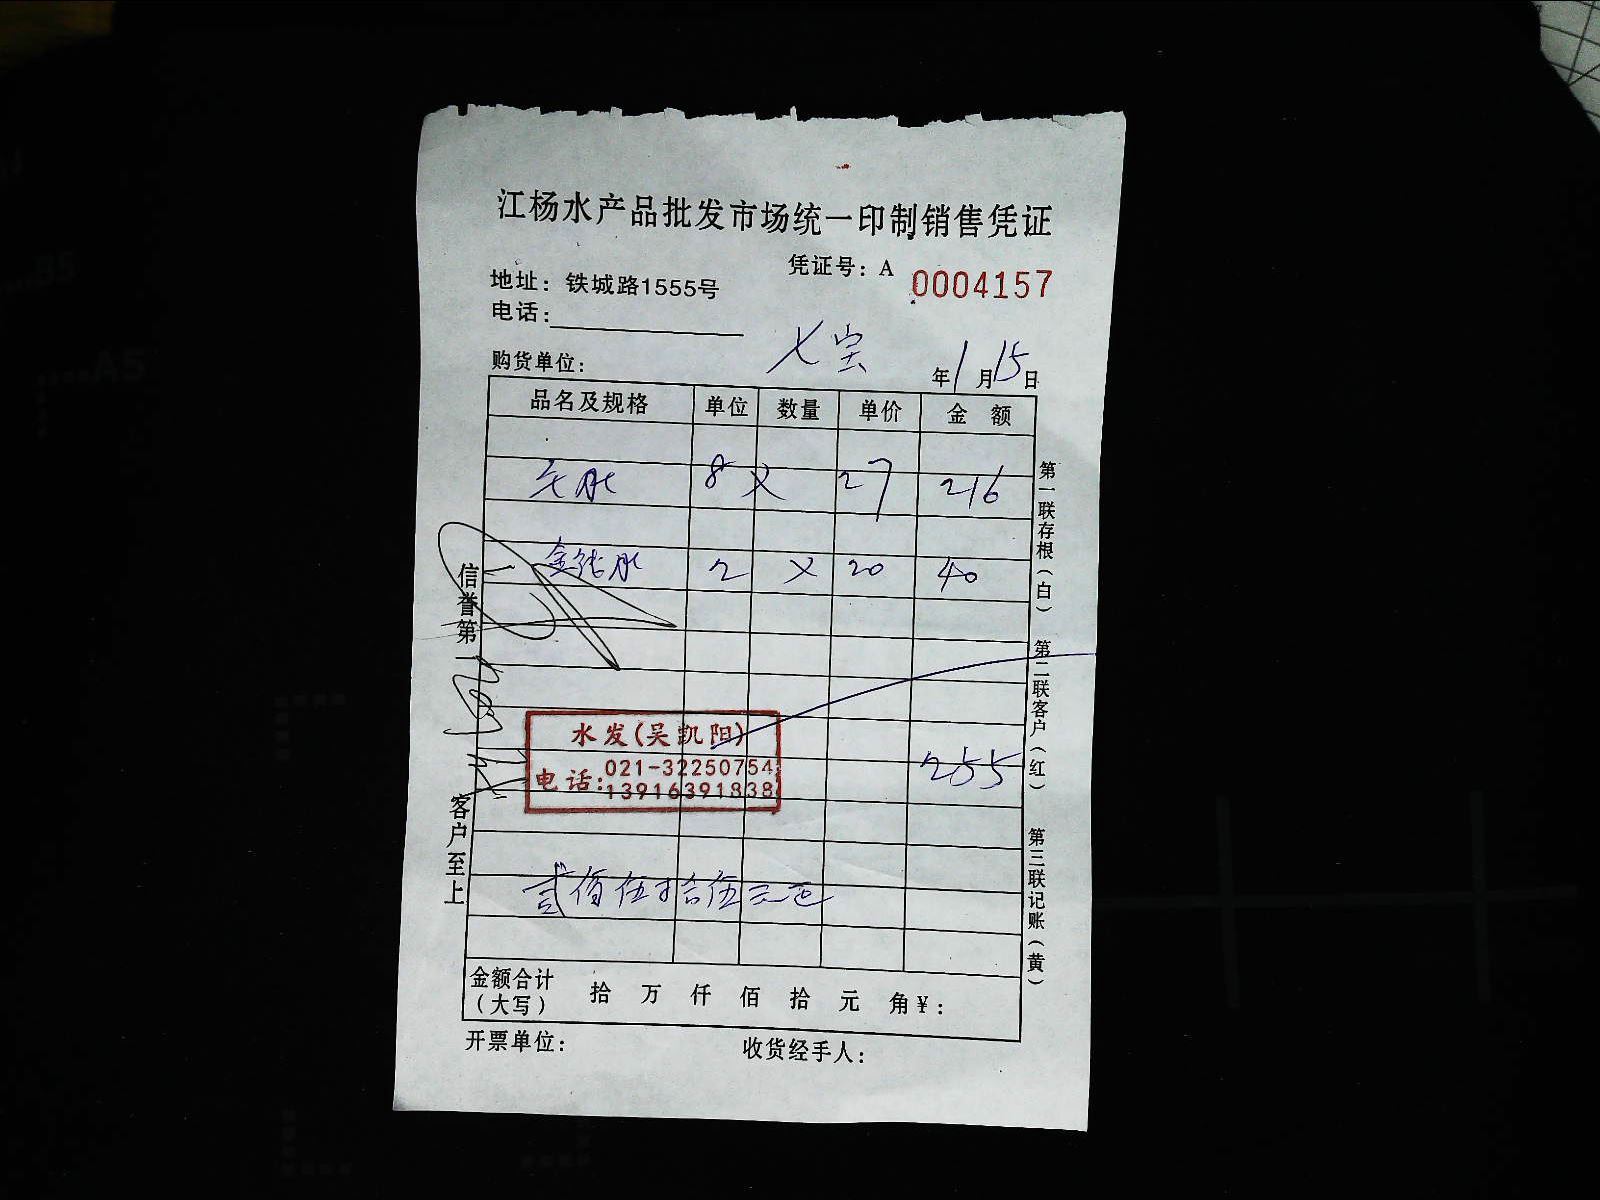 江杨水产品批发市场统一印制销售凭证
凭证号：A 0004157
地址：铁城路1555号
电话：
七宝
购货单位：
年1月15日
品名及规格 单位 数量 单价 金 额
8 X 27 216
2 X 20 40
水发(吴凯阳)
电话:021-32250754
13916391838
255
贰佰伍拾伍元正
金额合计（大写） 拾 万 仟 佰 拾 元 角￥：
开票单位： 收货经手人：
信誉第一
客户至上
第一联存根（白）
第二联客户（红）
第三联记账（黄）